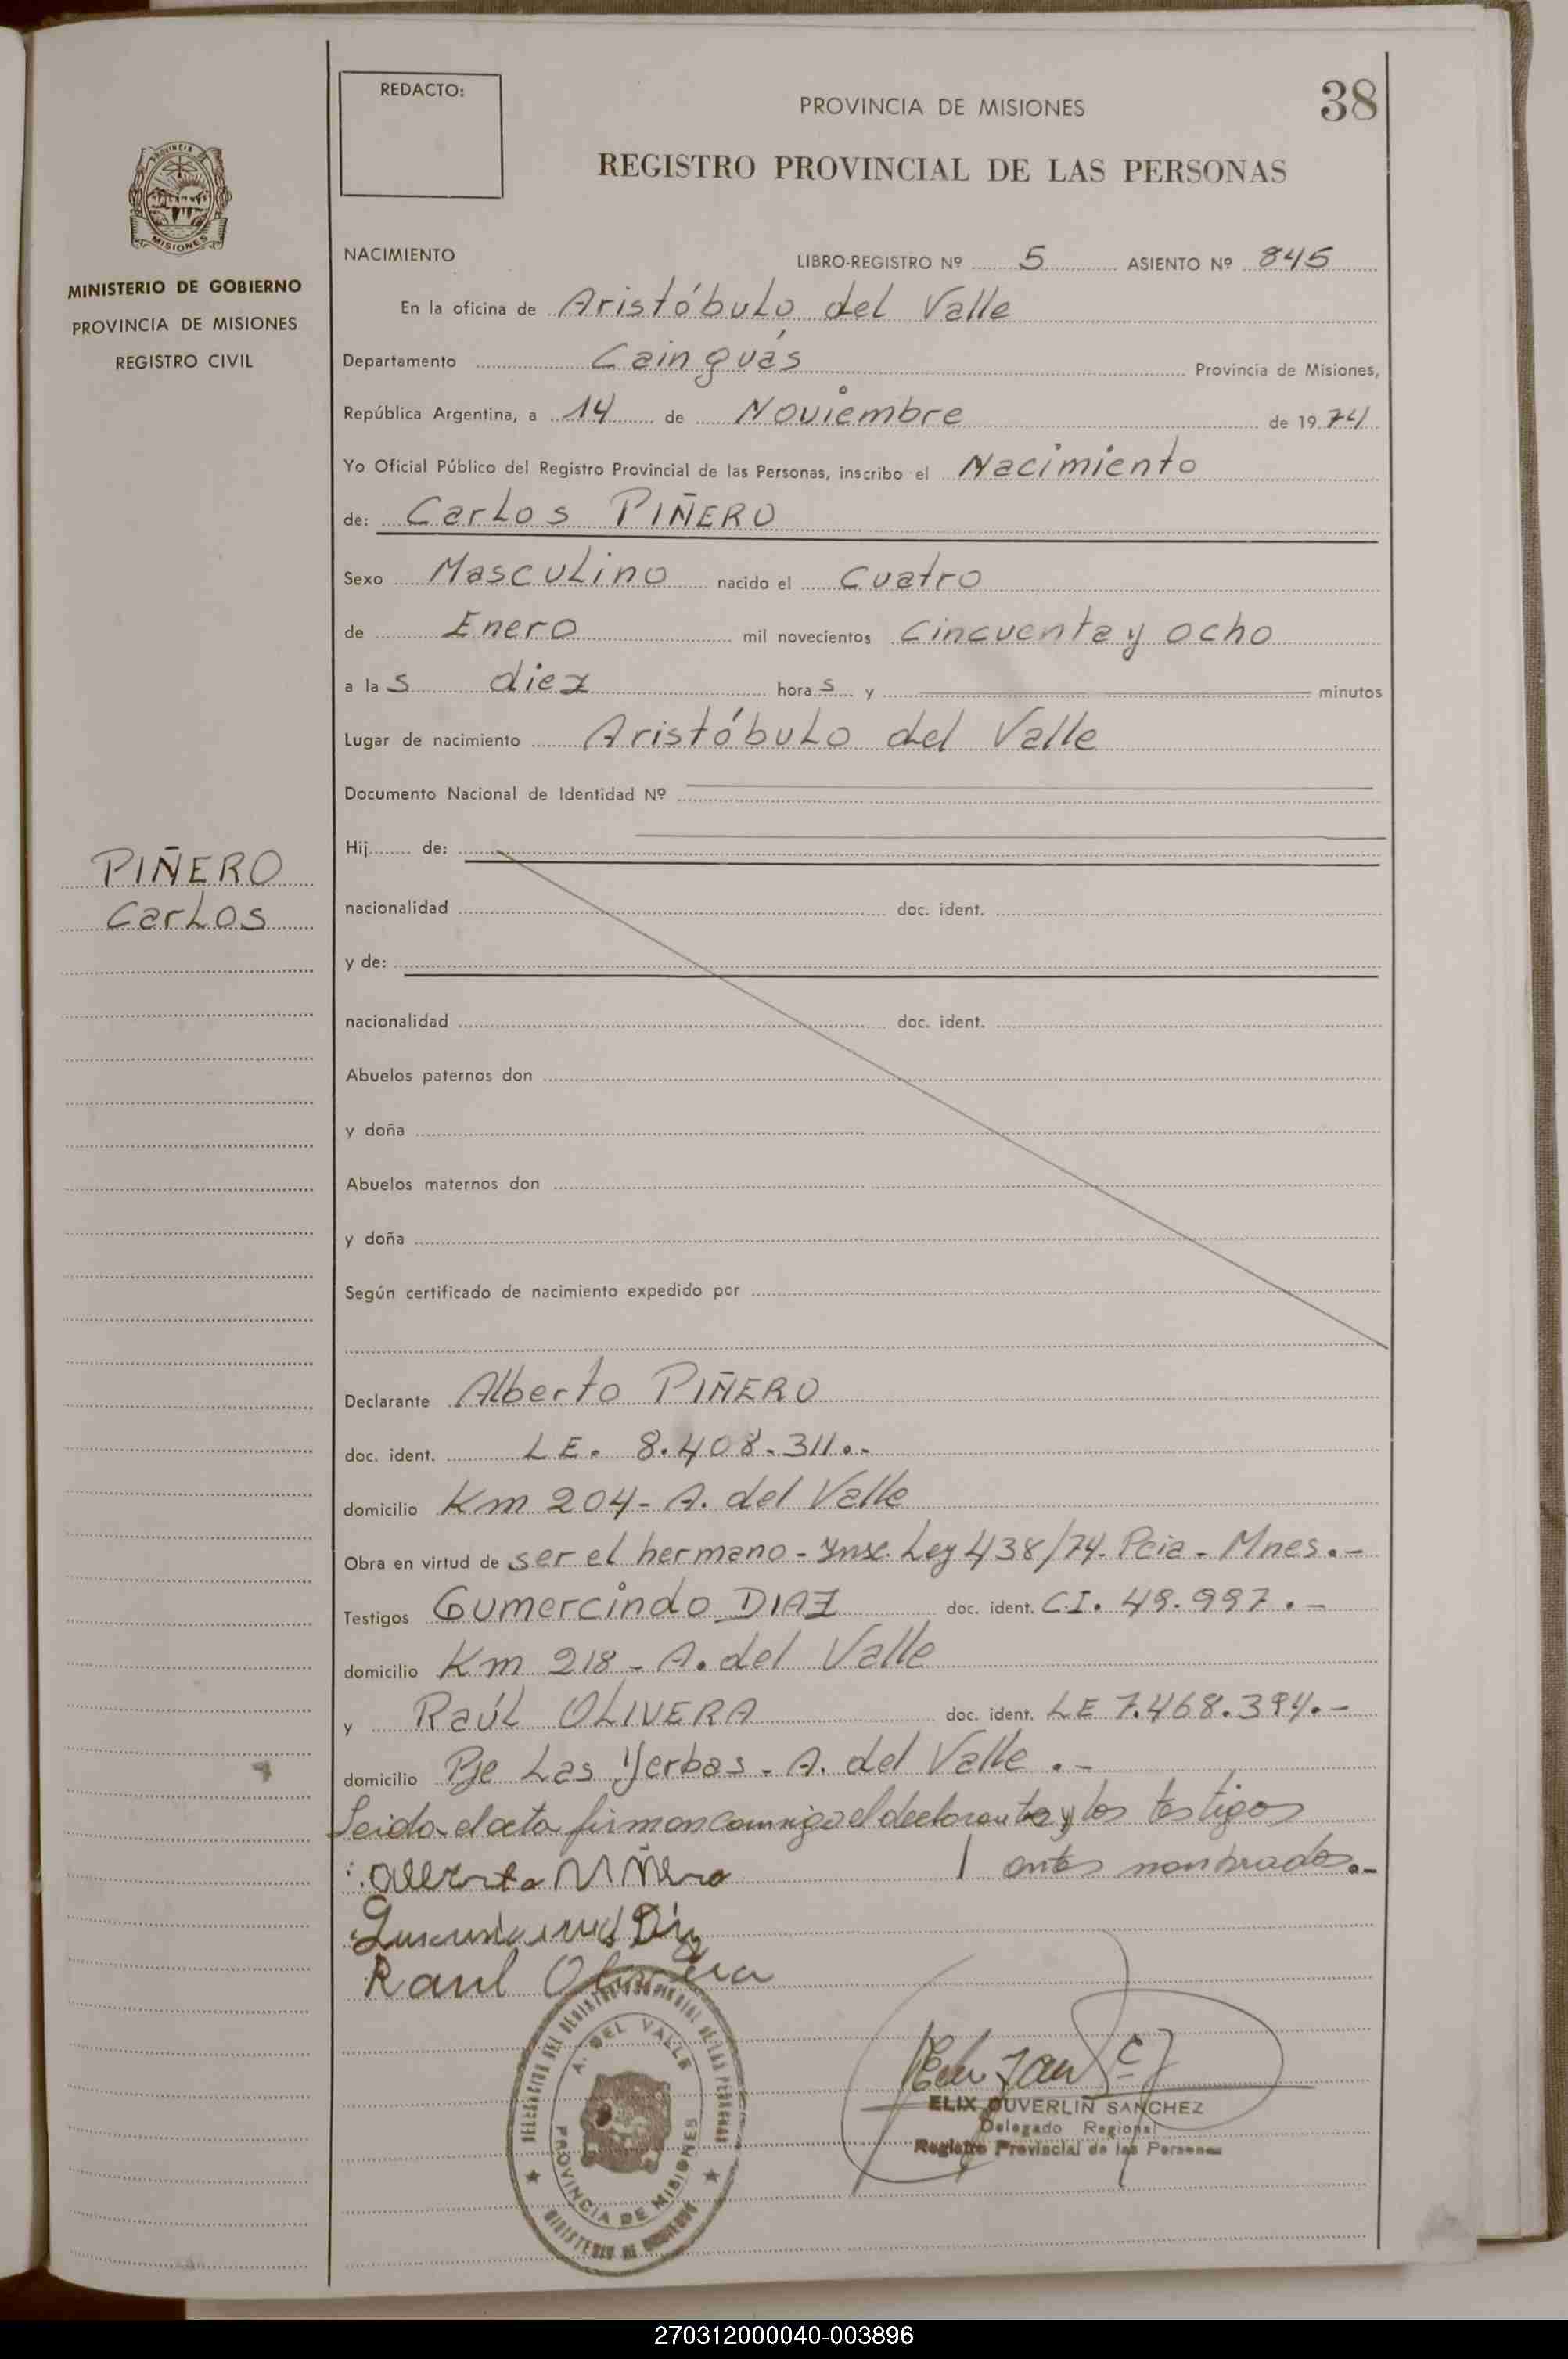 REDACTO:
PROVINCIA DE MISIONES
38
REGISTRO PROVINCIAL DE LAS PERSONAS
MISIONES
MINISTERIO DE GOBIERNO
PROVINCIA DE MISIONES
REGISTRO CIVIL
NACIMIENTO LIBRO-REGISTRO Nº 5 ASIENTO Nº 845
En la oficina de Aristóbulo del Valle
Departamento Cainguás Provincia de Misiones,
República Argentina, a 14 de Noviembre de 1974
Yo Oficial Público del Registro Provincial de las Personas, inscribo el Nacimiento
de: Carlos PIÑERO
Sexo Masculino nacido el Cuatro
de Enero mil novecientos Cincuenta y ocho
a las diez horas y minutos
Lugar de nacimiento Aristóbulo del Valle
Documento Nacional de Identidad Nº
Hij de:
PIÑERO
Carlos
nacionalidad doc. ident.
y de:
nacionalidad doc. ident.
Abuelos paternos don
y doña
Abuelos maternos don
y doña
Según certificado de nacimiento expedido por
Declarante Alberto PIÑERO
doc. ident. L.E. 8.408.311.-
domicilio Km 204- A. del Valle
Obra en virtud de ser el hermano - Insc. Ley 438/74. Pcia. Mnes.-
Testigos Gumercindo DIAZ doc. ident. C.I. 49.997.-
domicilio Km 218 - A. del Valle
y Raúl OLIVERA doc. ident. LE 7.468.394.-
domicilio Pje Las Yerbas - A. del Valle.-
Leida el acta firman conmigo el declarante y los testigos
antes nombrados.-
Alberto Piñero
Diaz
Raul Olivera
DELEGACION DEL REGISTRO PROVINCIAL DE LAS PERSONAS
A. DEL VALLE
PROVINCIA DE MISIONES
MINISTERIO DE GOBIERNO
ELIX OUVERLIN SANCHEZ
Delegado Regional
Registro Provincial de las Personas
270312000040-003896